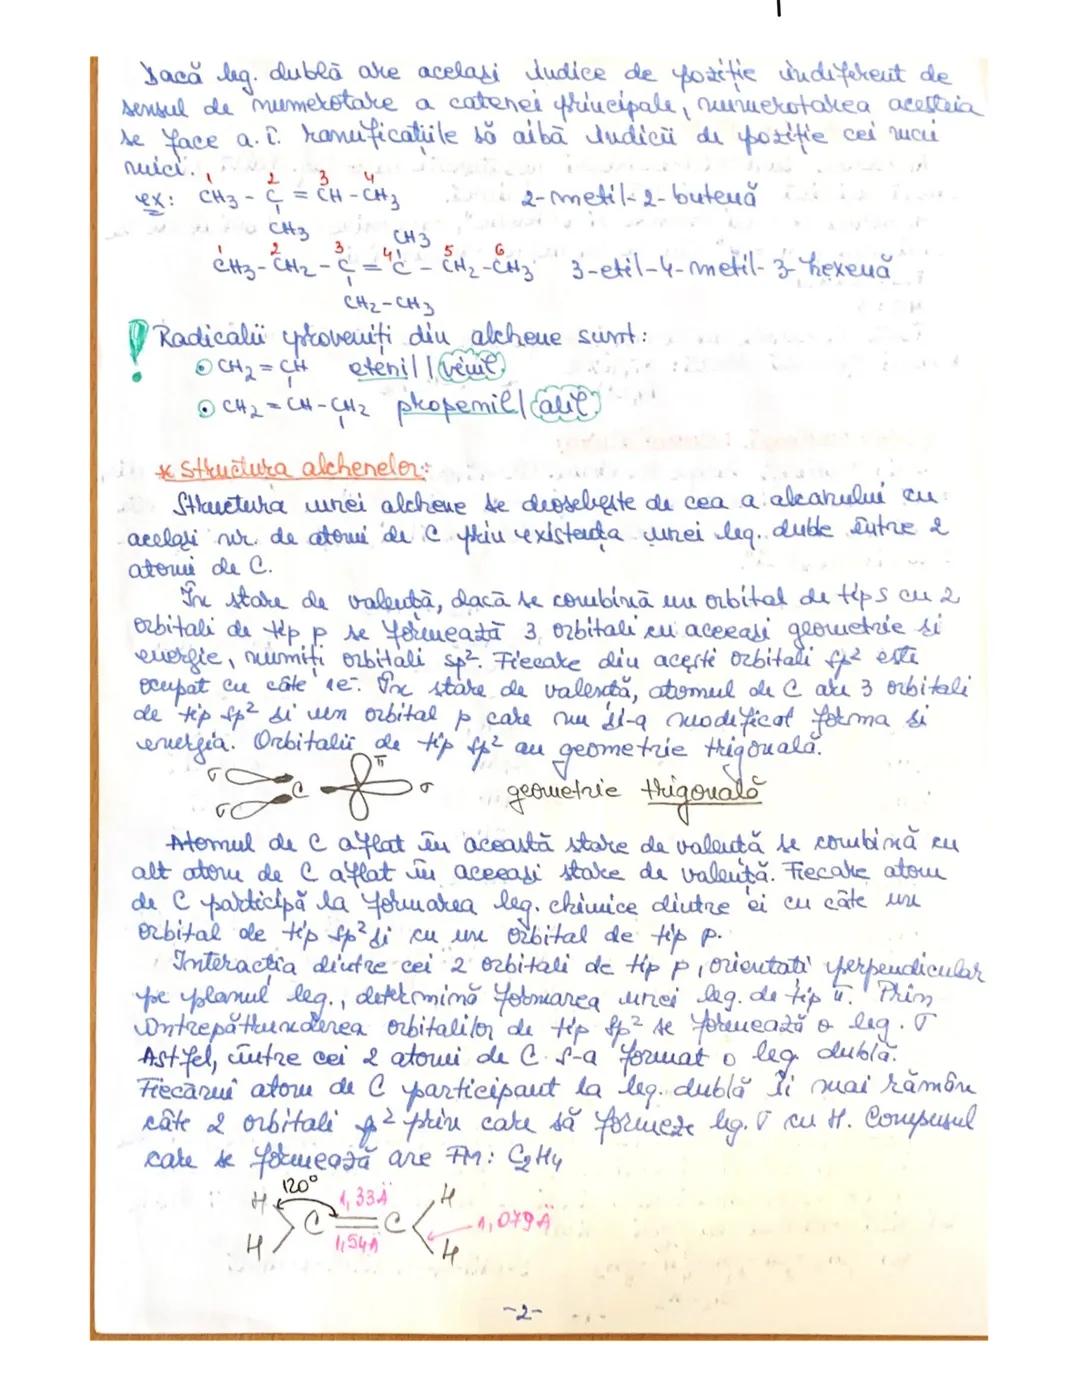 Dacă leg. dublă are același indice de poziție indiferent de
sensul de numerotare a catenei principale, numerotarea acesteia
se face a.î. ramificațiile să aibă indicii de poziție cei mai
mici.
1 2 3 4
ex: CH3 - C = CH - CH3 2-metil-2-butenă
CH3 CH3
1 2 3 4 5 6
CH3-CH2-C = C - CH2-CH3 3-etil-4-metil-3-hexenă
CH2-CH3
! Radicalii proveniți din alchene sunt:
CH2 = CH etenil | vinil
CH2 = CH-CH2 propenil | alil
* Structura alchenelor:
Structura unei alchene se deosebește de cea a alcanului cu
același nr. de atomi de C prin existența unei leg. duble între 2
atomi de C.
În stare de valență, dacă se combină un orbital de tip s cu 2
orbitali de tip p se formează 3 orbitali cu aceeași geometrie și
energie, numiți orbitali sp². Fiecare din acești orbitali sp² este
ocupat cu câte 1e⁻. În stare de valență, atomul de C are 3 orbitali
de tip sp² și un orbital p care nu și-a modificat forma și
energia. Orbitalii de tip sp² au geometrie trigonală.
σ C π σ geometrie trigonală
σ
Atomul de C aflat în această stare de valență se combină cu
alt atom de C aflat în aceeași stare de valență. Fiecare atom
de C participă la formarea leg. chimice dintre ei cu câte un
orbital de tip sp² și cu un orbital de tip p.
Interacția dintre cei 2 orbitali de tip p, orientați perpendicular
pe planul leg., determină formarea unei leg. de tip π. Prin
întrepătrunderea orbitalilor de tip sp² se formează o leg. σ
Astfel, între cei 2 atomi de C s-a format o leg. dublă.
Fiecărui atom de C participant la leg. dublă îi mai rămân
câte 2 orbitali p² prin care să formeze leg. σ cu H. Compusul
care se formează are FM: C2H4
120°
H 1,33Å H
C = C 1,079Å
H 1,54Å H
-2-